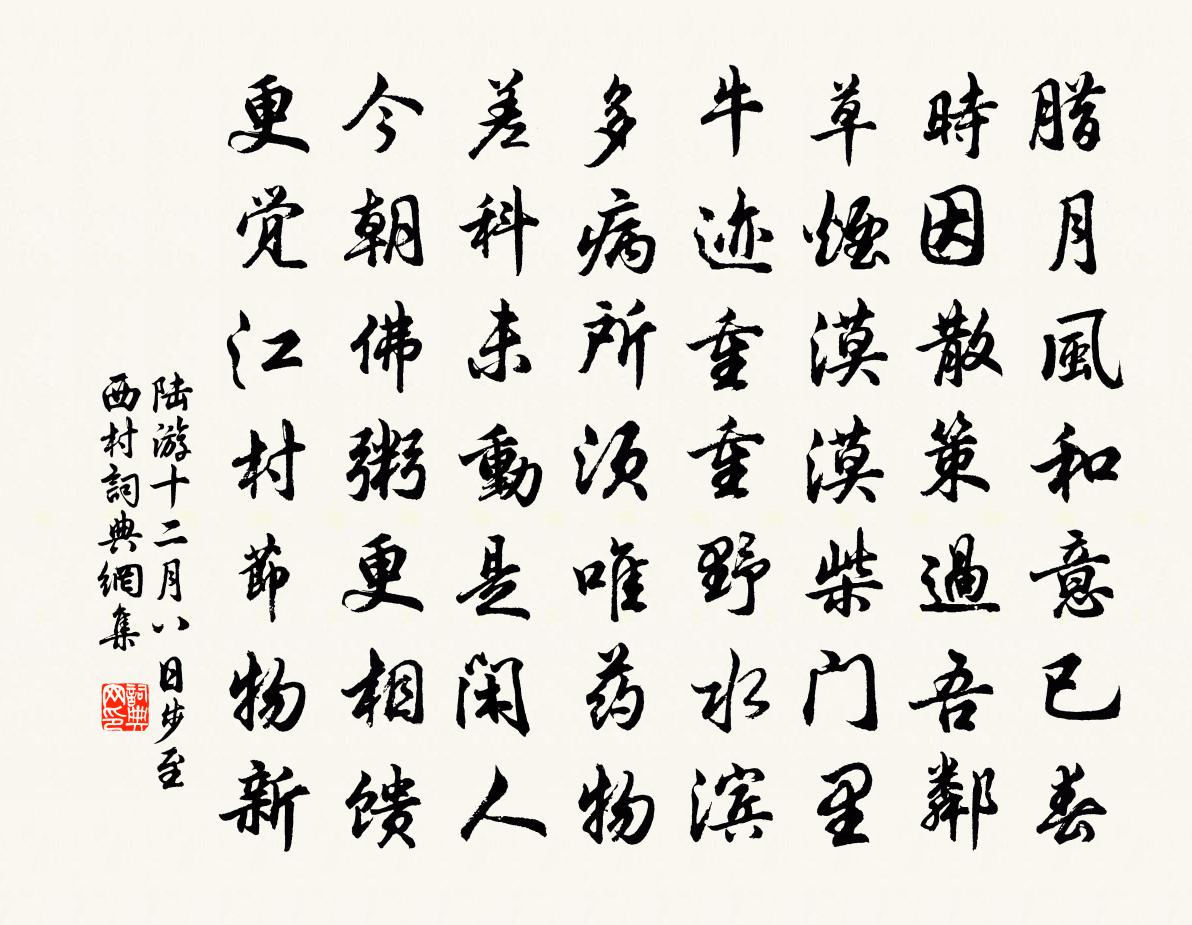 腊月風和意已春
時因散策過吾鄰
草煙漠漠柴门里
牛迹重重野水滨
多病所须唯药物
差科未動是闲人
今朝佛粥更相馈
更觉江村節物新
陆游十二月八日步至
西村詞典網集
詞典
网印